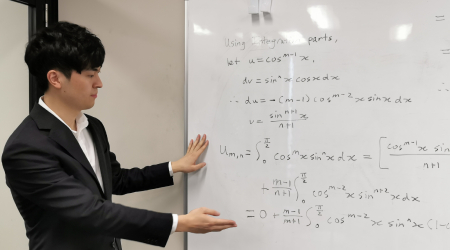 Using integration by parts,
let u = cos^{m-1} x
dv = sin^n x cosx dx
∴ du = -(m-1) cos^{m-2} x sinx dx
v = \frac{sin^{n+1} x}{n+1}
U_{m,n} = ∫_0^{π/2} cos^m x sin^n x dx = [ \frac{cos^{m-1} x sin
+ \frac{m-1}{n+1} ∫_0^{π/2} cos^{m-2} x sin^{n+2} x dx
= 0 + \frac{m-1}{n+1} ∫_0^{π/2} cos^{m-2} x sin^n x (1-c